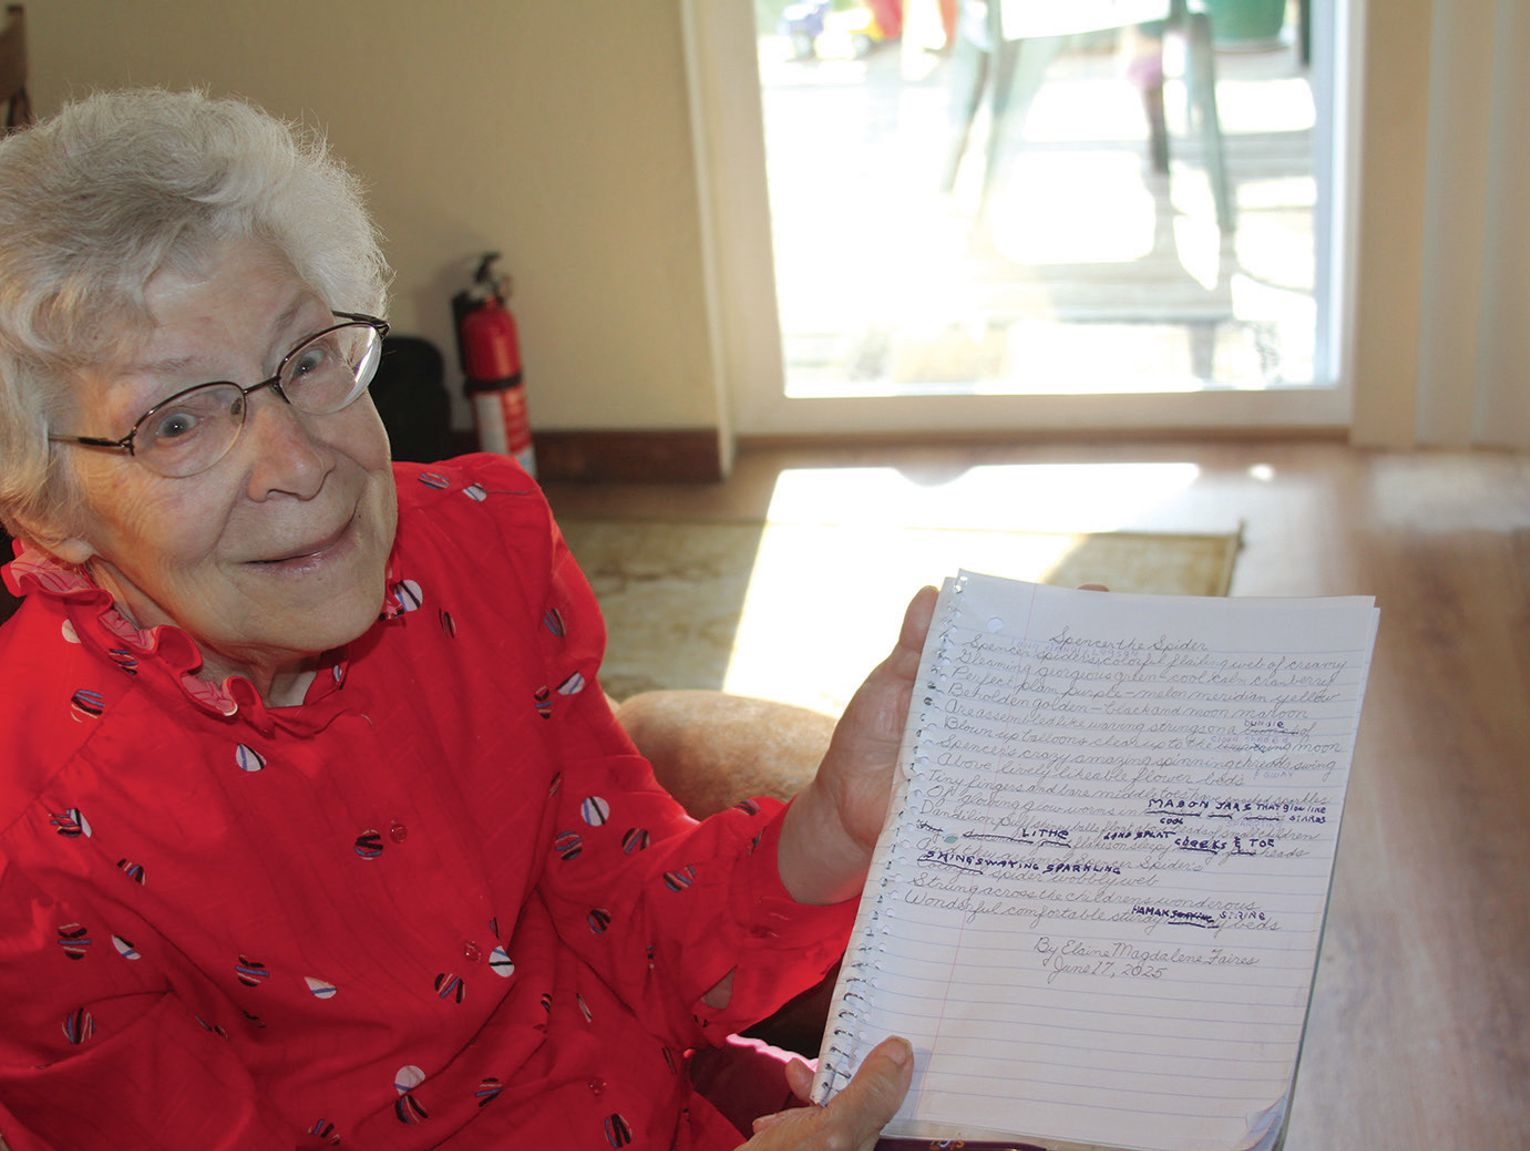 Spencer the Spider
Spencer Spiders colorful flailing web of creamy
Gleaming gorgious green - cool calm cranberry
Perfect plam purple - melon meridian yellow
Beholden golden - black and moon maroon
Are assembled like waving strings on a of
BUNGIE
Blown up balloons clear up to the moon
Spencer's crazy amazing spinning threads swing
Above lively likeable flower beds
Tiny fingers and bare middle toes have sparkles
Of glowing glow worms in MASON JARS THAT glow like
STARS
Dandilion puff small children
COOL
LITHE SAND SPLAT CHEEKS & TOE
flakes on sleepy heads
And they dream of Spencer Spider's
SHINE SWAYING SPARKLING
spider wobbly web
Strung across the childrens wonderous
Wonderful comfortable sturdy beds
HAMAK STRING
By Elaine Magdalene Faires
June 17, 2025